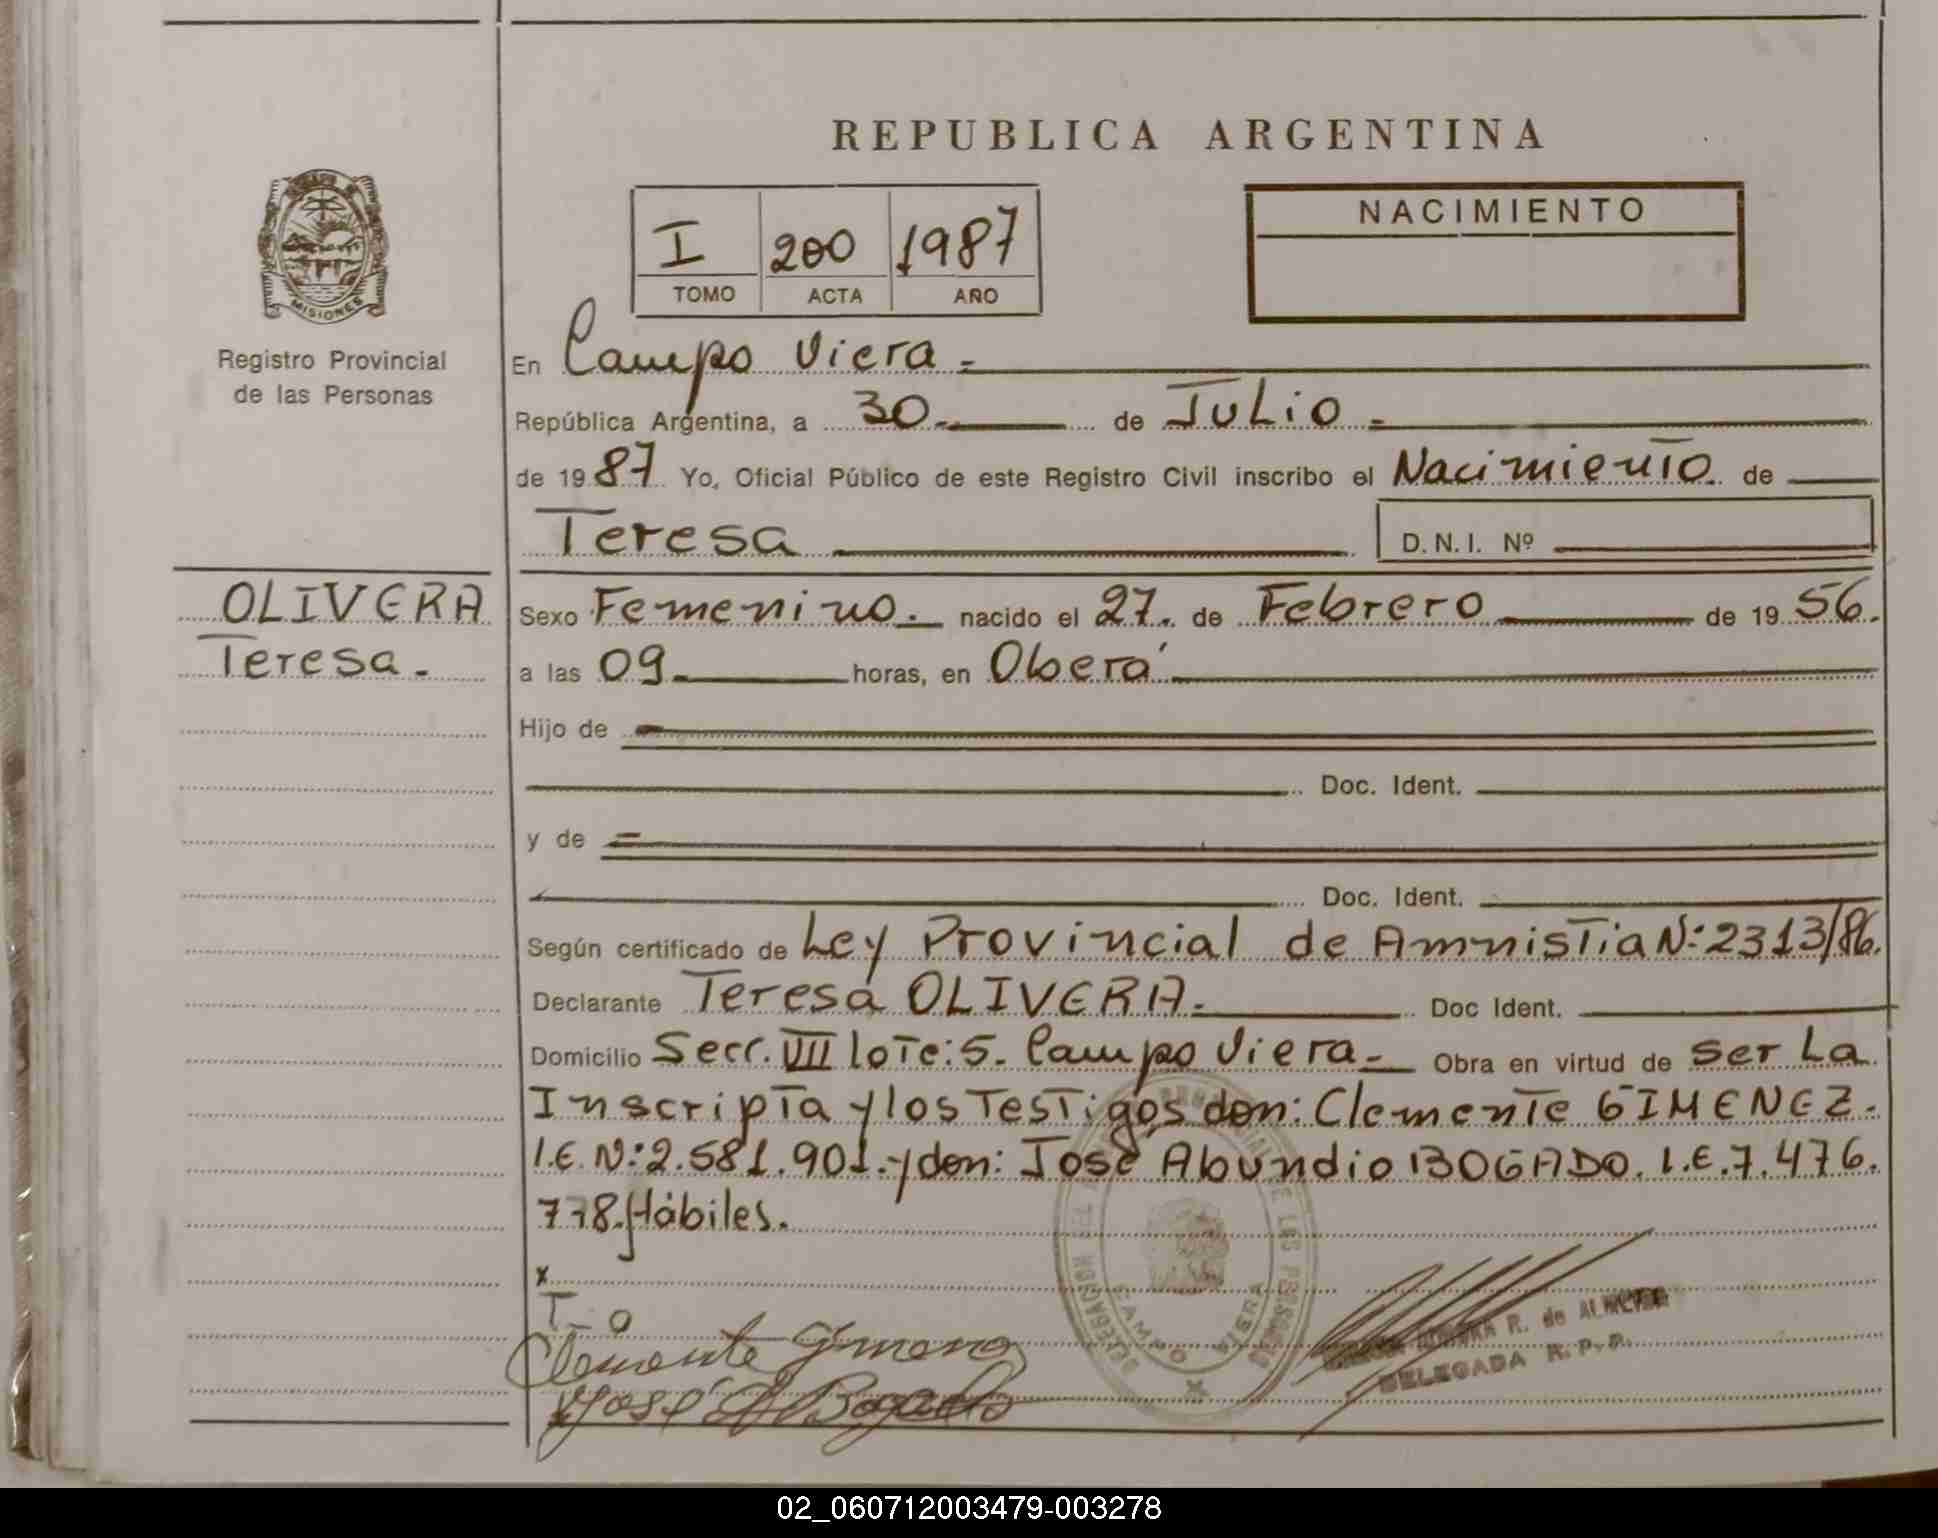 REPUBLICA ARGENTINA
MISIONES
Registro Provincial
de las Personas
I 200 1987
TOMO ACTA AÑO
NACIMIENTO
En Campo Viera.
República Argentina, a 30. de Julio.
de 1987 Yo, Oficial Público de este Registro Civil inscribo el Nacimiento de
Teresa D.N.I. Nº
OLIVERA
Teresa.
Sexo Femenino. nacido el 27. de Febrero de 1956.
a las 09. horas, en Oberá
Hijo de
Doc. Ident.
y de
Doc. Ident.
Según certificado de Ley Provincial de Amnistia N: 2313/86.
Declarante Teresa OLIVERA. Doc Ident.
Domicilio Secc. VII lote: 5. Campo Viera. Obra en virtud de ser La
Inscripta y los Testigos don: Clemente GIMENEZ.
I.E. N: 2.581.901. y don: José Abundio BOGADO. I.E. 7.476.
778. Hábiles.
x
T O
Clemente Jimenez
José A Bogado
DELEGACION DEL PROVINCIAL DE LAS PERSONAS
CAMPO VIERA
R. de
DELEGADA R.P.P.
02_060712003479-003278